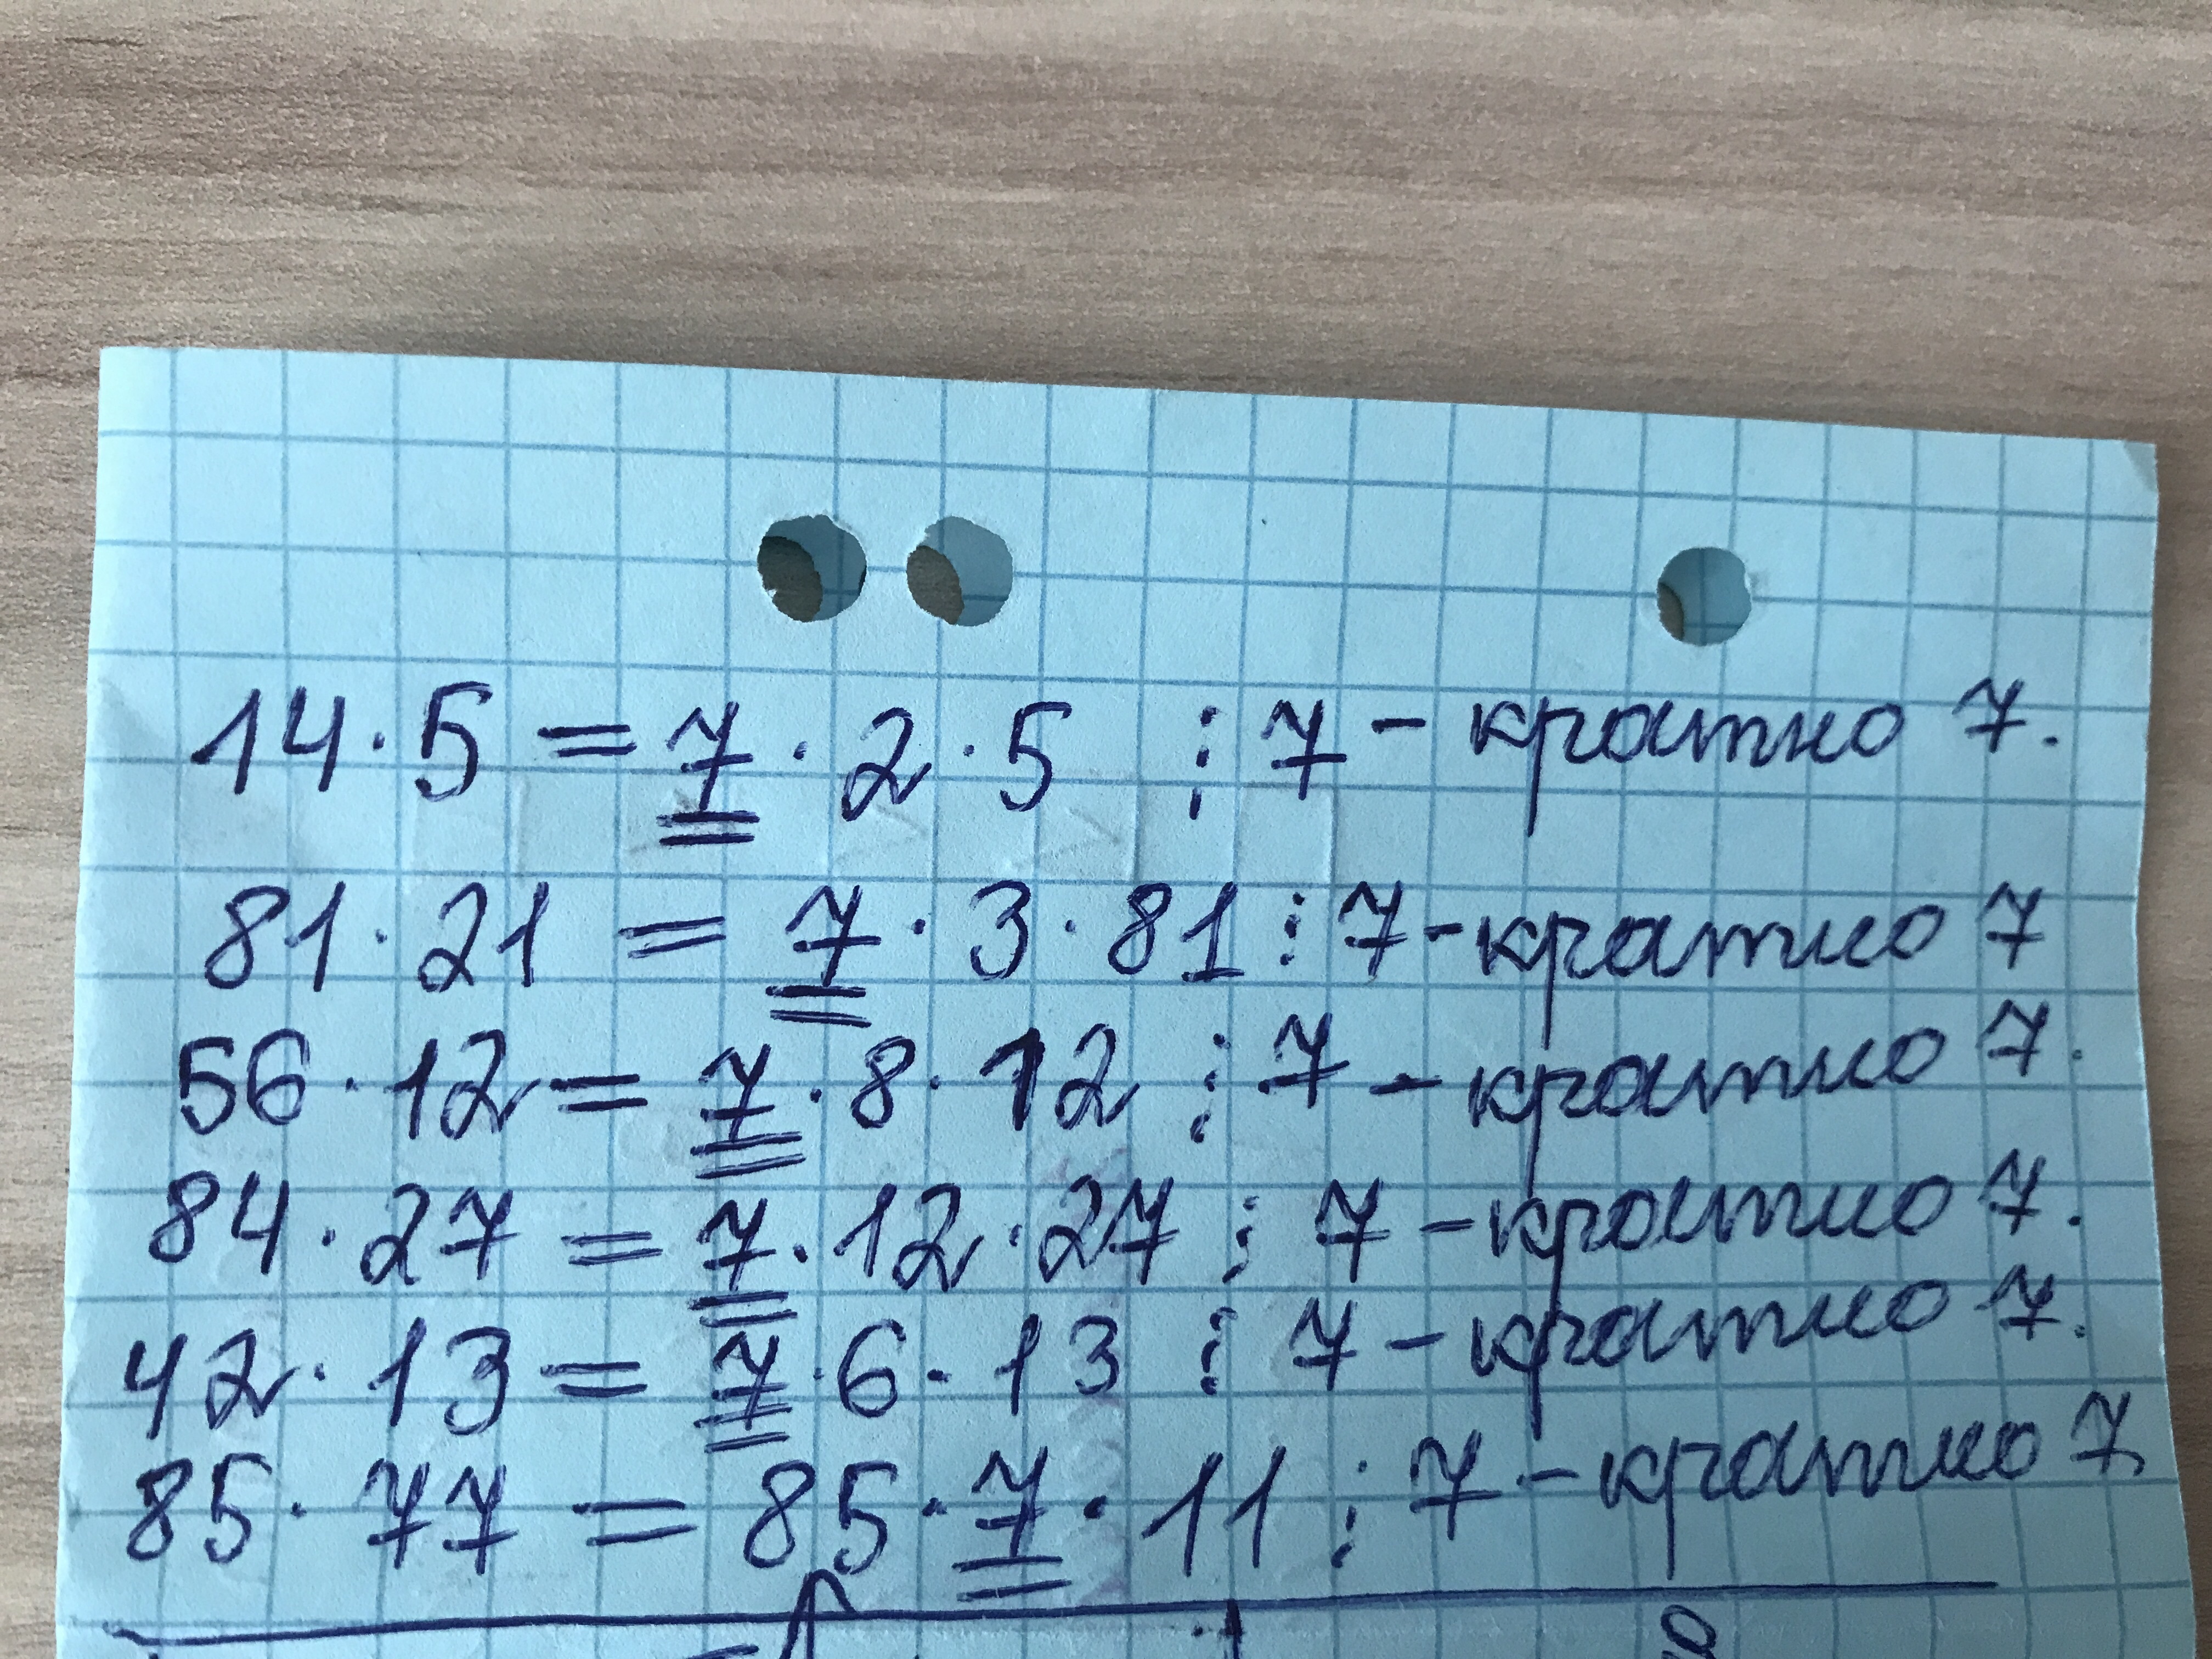 14·5 = 7·2·5 ⋮ 7 - кратно 7.
81·21 = 7·3·81 ⋮ 7 - кратно 7
56·12 = 7·8·12 ⋮ 7 - кратно 7.
84·27 = 7·12·27 ⋮ 7 - кратно 7.
42·13 = 7·6·13 ⋮ 7 - кратно 7.
85·77 = 85·7·11 ⋮ 7 - кратно 7